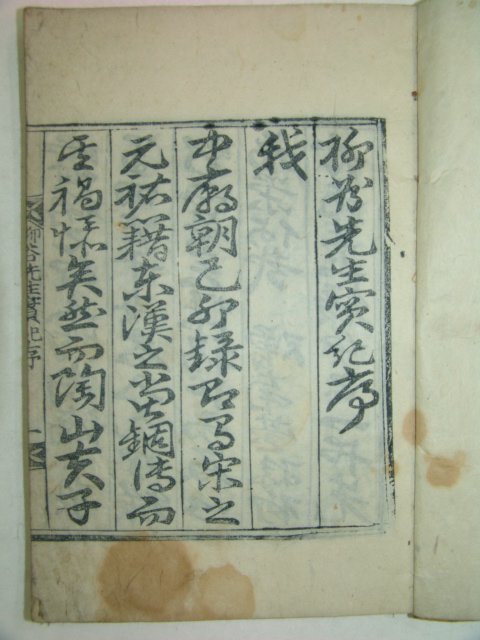 柳谷先生實紀序
我
中廟朝己卯錄即有宋之
元祐籍東漢之黨錮傳而
其禍慘矣然而陶山夫子
柳谷先生實紀序
一